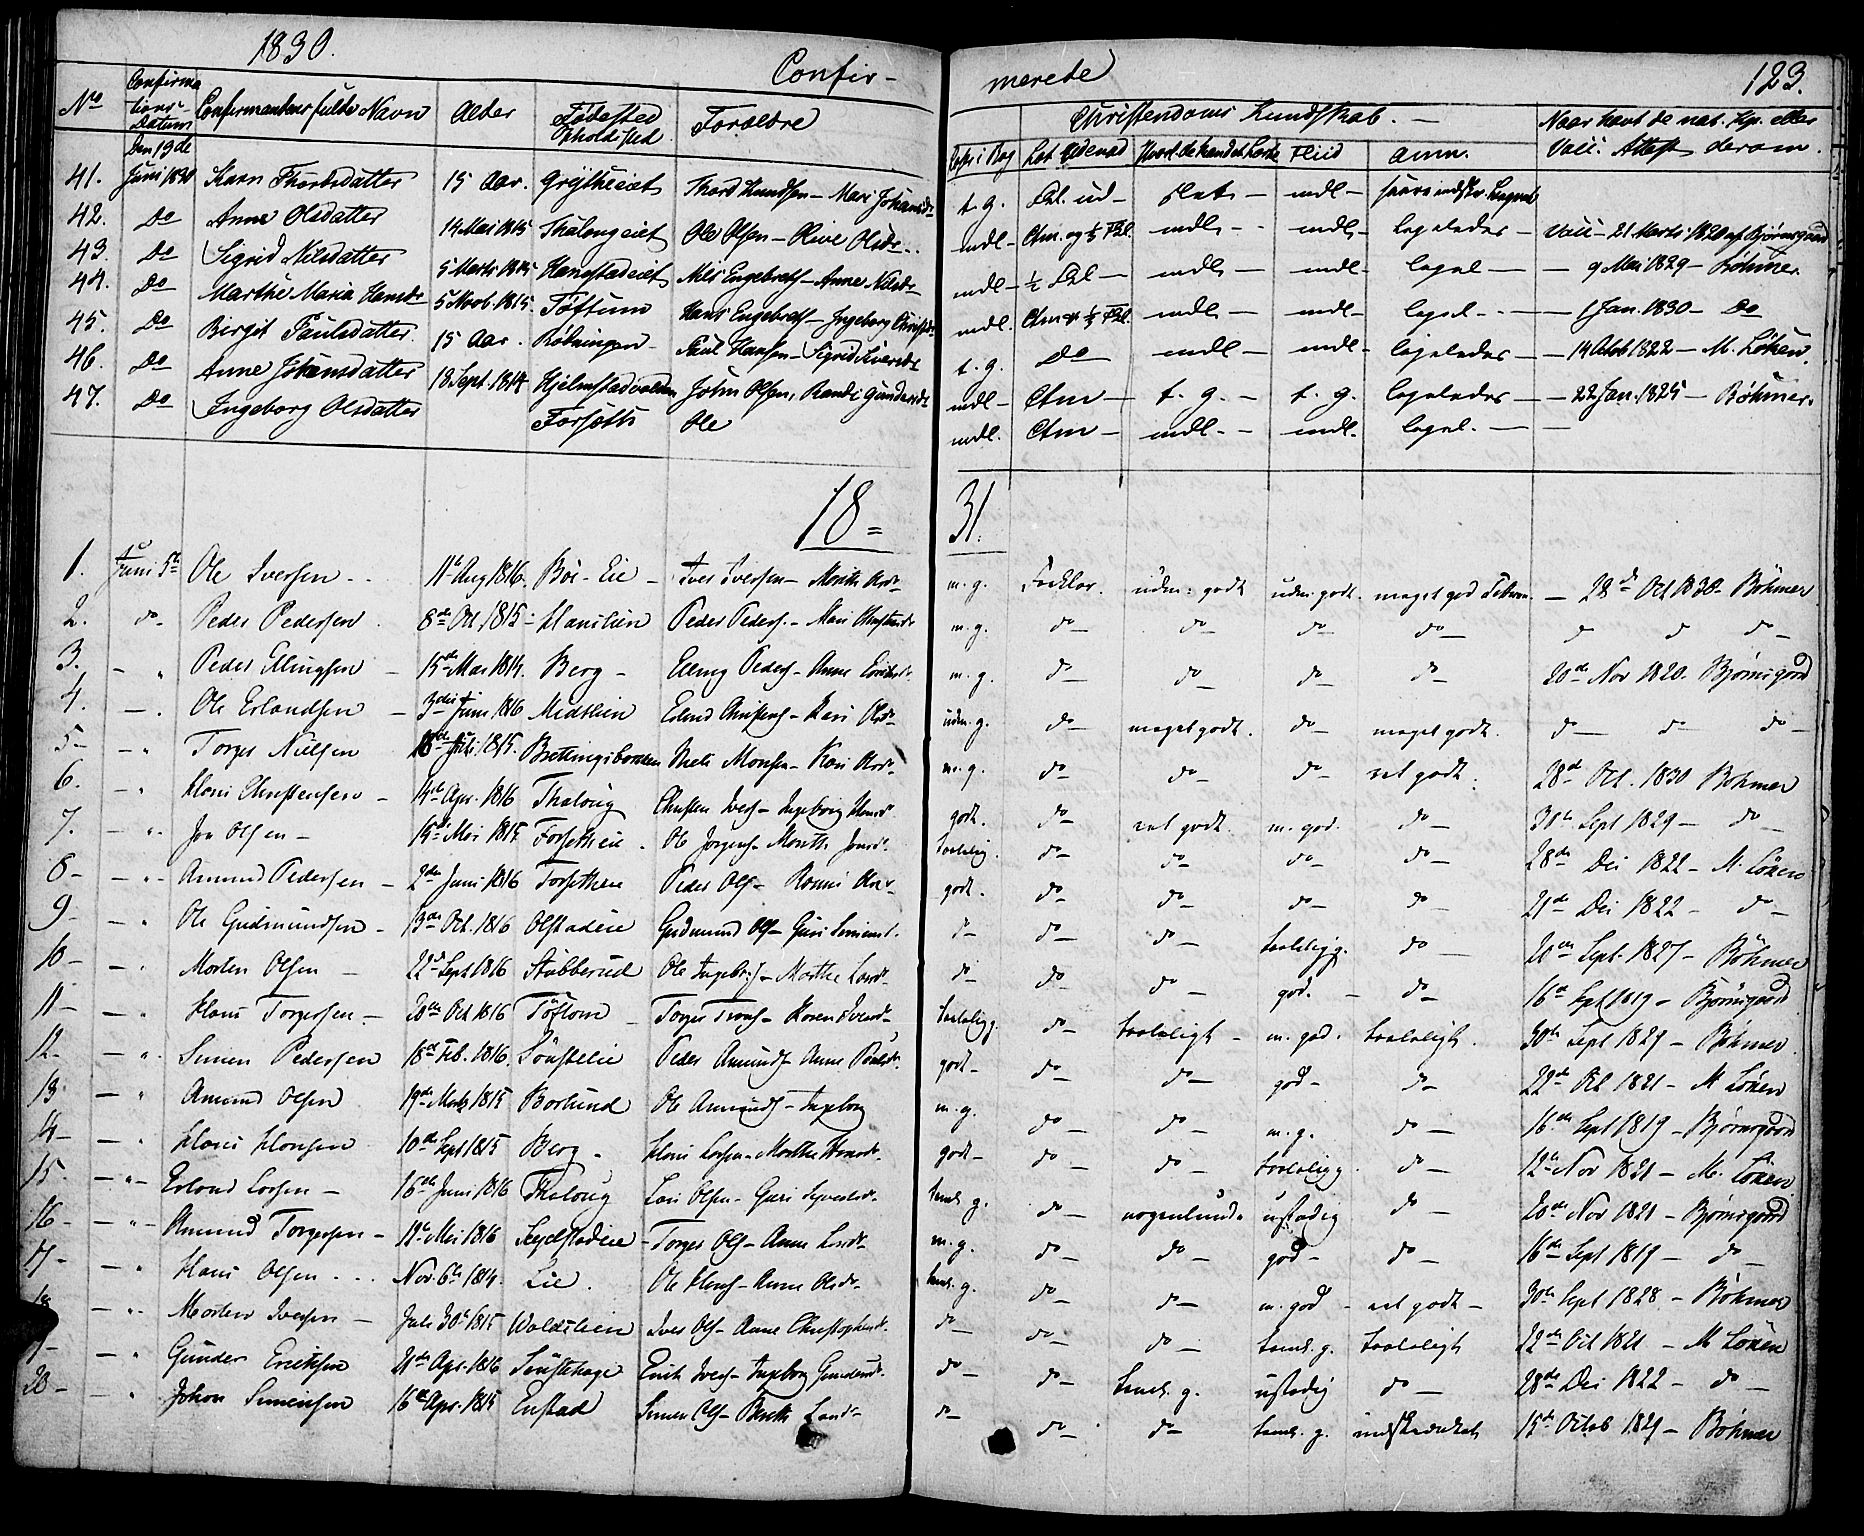 1830.
Confir-
merede
123.
No
Confirma
tions-
Datum
Confirmandens fulde Navn
Alder
Fødested
Opholdsted
Forældre
Christendoms Kundskab. -
Naar havt de nat. Kop. eller
Vacc. Attest derom.
Læse i Bog
Lat Udenad
Hvort. de han det Lærte
Fliid
Anm.
Den 19de
41. Juni 1830 Karn Thordsdatter 15 Aar. Grytheeiet Thord Knudsen - Mari Johansdr t.g. Fkl. ud - slet - mdl -
42. Do Anne Olsdatter 14 Mai 1815 Thalougeiet Ole Olsen - Olive Olsdr. mdl - Ctm. og ½ Fkl. mdl - mdl - ligeledes - Vacc - 21 Marts 1820 af Bjørnsgaard
43. Do Sigrid Nilsdatter 5 Marts 1815 Hangstadeiet Nils Engebrets - Anne Nilsdr mdl - ½ Fkl - mdl - mdl - ligel - - 9 Mai 1829 - Bøhmer.
44. Do Marthe Maria Hansdr 5 Novb. 1815 Toftum Hans Engebrets - Ingeborg Christophsdr mdl. Ctm og ½ Fkl. mdl - mdl - ligel - - - 1 Jan. 1830 - Do
45. Do Birgit Paulsdatter 15 Aar. Røbningen Paul Hansen - Sigrid Iversdr t.g. Do mdl - mdl - ligeledes - - 14 Octob 1822 - M. Løken.
46. Do Anne Johansdatter 18 Sept. 1814 Hjelmstadvolden John Olsen, Randi Gundersdr mdl - Ctm - t.g. - t.g. ligeledes - - 22 Jan. 1825 - Bøhmer.
47. Do Ingeborg Olsdatter Forseth Ole mdl. Ctm - mdl. - mdl. ligel. - -
18 = 31.
1. Juni 5te Ole Iversen - - 11te Aug 1816. Böe-Eie - Iver Iversen - Marith Olsdr m.g. Forklar. uden: godt uden: godt. meget god - 28de Oct 1830 - Böhmer
2. do Peder Pedersen 8de Oct. 1815 - Hanslien Peder Peders. - Mari Christensdr m.g. do - do - do - do - d d do -
3. - " Peder Ellingsen - 15de Mai 1814. Berg - Elling Peders - Anne m.g. do - do - do - do - 20de Nov 1820. Bjørnsgård
4. - . Ole Erlandsen - 3die Juni 1816 Medtlien Erland Christens - Kari Olsdr uden. g. do - meget godt. do - meget godt. do - do - do -
5 - - " Torger Nielsen 18de Juli 1815. Niels Monsen - Kari Olsdr m.g. do - do - do - ret godt. 28de Oct. 1830 Böhmer
6. - " Hans Christensen - 14de Apr. 1816 Thaloug Christen Ivers - Ingeborg Hansd godt. do - ret godt. m. god. do - 30te Sept 1829 - do -
7. - " - Jon Olsen - 15de Mai 1815 Forsetheie - Ole Jörgens - Marith Jonsd. taalelig. do - do - do - do - 28de Dec 1822 - M. Löken
8 - - " - Amund Pedersen - 2den Juni 1816 Forsetheie Peder Ols - Ronni godt. do - do - do - do - 21de Dec 1822 - do -
9 - - " Ole Gudmundsen - 13de Oct. 1816 Olstadeie Gudmund Ols - Guri Simensd. do - do - do - taaleligg. do - 20de Sept. 1827 - Böhmer
10 - - " Morten Olsen - 22de Sept 1816 Stubberud Ole Ingebrigts - Marthe Larsd. do - do - do - god. - do - 16de Sept 1819 - Bjørnsgaard
11 - - " Hans Torgersen - 20de Oct 1816 Töftom - Torger Trons - Karen Iversdr taaleligg. do - taaleligt - m. god. taaleligt. 30te Sept 1829 - Böhmer
12 - - " - Simen Pedersen 18de Feb. 1816. Sönsteeie Peder Amunds - Anne Poulsdr. godt - do - do - god - do - 22de Oct 1821 - M Löken
13 - " Amund Olsen 19de Marts 1815 Borlund Ole Amunds - Ingeborg m.g. do - do - m.g. do - 16de Sept 1819 - Bjørnsgård
14 - - " Hans Hansen 10de Sept 1815 Berg - Hans Larsen - Marthe Hansdr. godt - do - do - taaleligg. do - 12te Nov 1821 - M. Löken
15. - " - Erland Larsen - 16de Juni 1816 Thaloug Lars Olsen - Guri Syversdr. teml. g. do - nogenlunde ustadig do - 20de Nov 1821 - Bjørnsgård
16 - - " - Amund Torgersen - 12te Mai 1816 Segelstadeie - Torger Ols - Anne Larsdr m.g. do - do - god - do - 16de Sept 1819 - do -
17 - - " Hans Olsen - - . Nov. 6te 1814. Lie. Ole Hans - Anne Olsdr - teml. g. do - do - m. god - ret godt - 30te Sept 1828 - Böhmer
18 - " - Morten Iversen - Juli 30te 1815 Woldslien Iver Ols - Anne Christophersdr. do - do - do - teml. g. taaleligt 22de Oct 1821 - M Löken
19 - - " Gunder Erichsen 21de Apr. 1816 Sönstehage Erich Ivers - Ingeborg Gundersd. do - do - teml. g. ustadig do - 28de Dec 1822 - do -
20 - - " Johan Simensen 16de Apr. 1815 Enstad Simen Ols - Berthe Larsdr do - do - do - teml. g. indskrænket 15de Octob 1829 - Böhmer